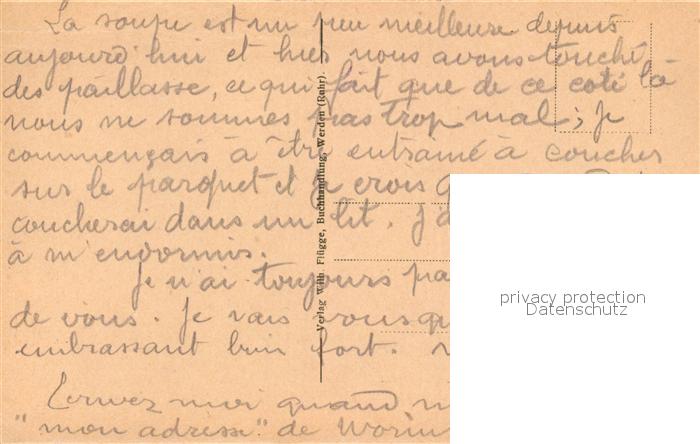 La soupe est un peu meilleure depuis
aujourd'hui et hier nous avons touché
des paillasse, ce qui fait que de ce coté là
nous ne sommes pas trop mal; je
commençais à être entrainé à coucher
sur le parquet et je crois
coucherai dans un lit. J'a
à m'endormir.
Je n'ai toujours pa
de vous. Je vais vous qu
embrassant bien fort.
Ecrivez moi quand m
"mon adresse" de Worm
Verlag Wilh. Flügge, Buchhandlung, Werden (Ruhr).
privacy protection
Datenschutz